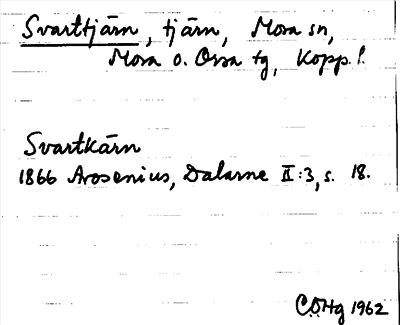 Svarttjärn, tjärn, Mora sn,
Mora o. Orsa tg, Kopp. l.
Svartkärn
1866 Arosenius, Dalarne II:3, s. 18.
CÖHg 1962